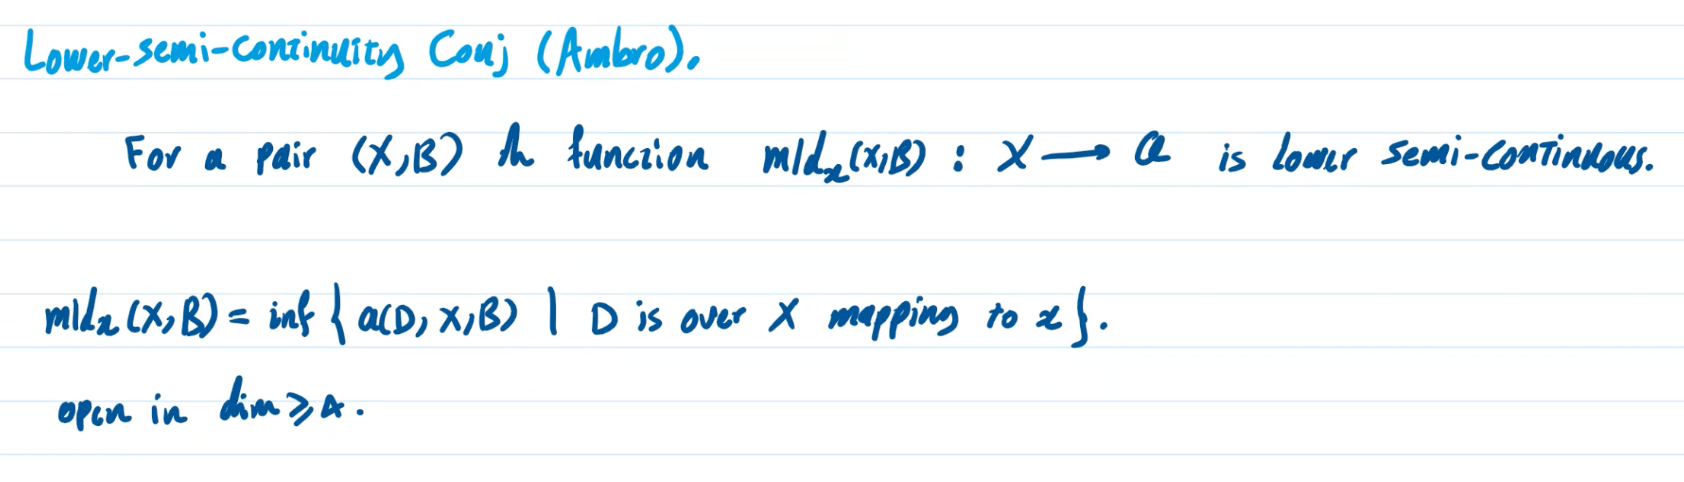 Lower-semi-continuity Conj (Ambro).
For a pair (X,B) th function mld_x(X,B) : X → Q is lower semi-continuous.
mld_x(X,B) = inf { a(D, X, B) | D is over X mapping to x }.
open in dim ≥ 4.